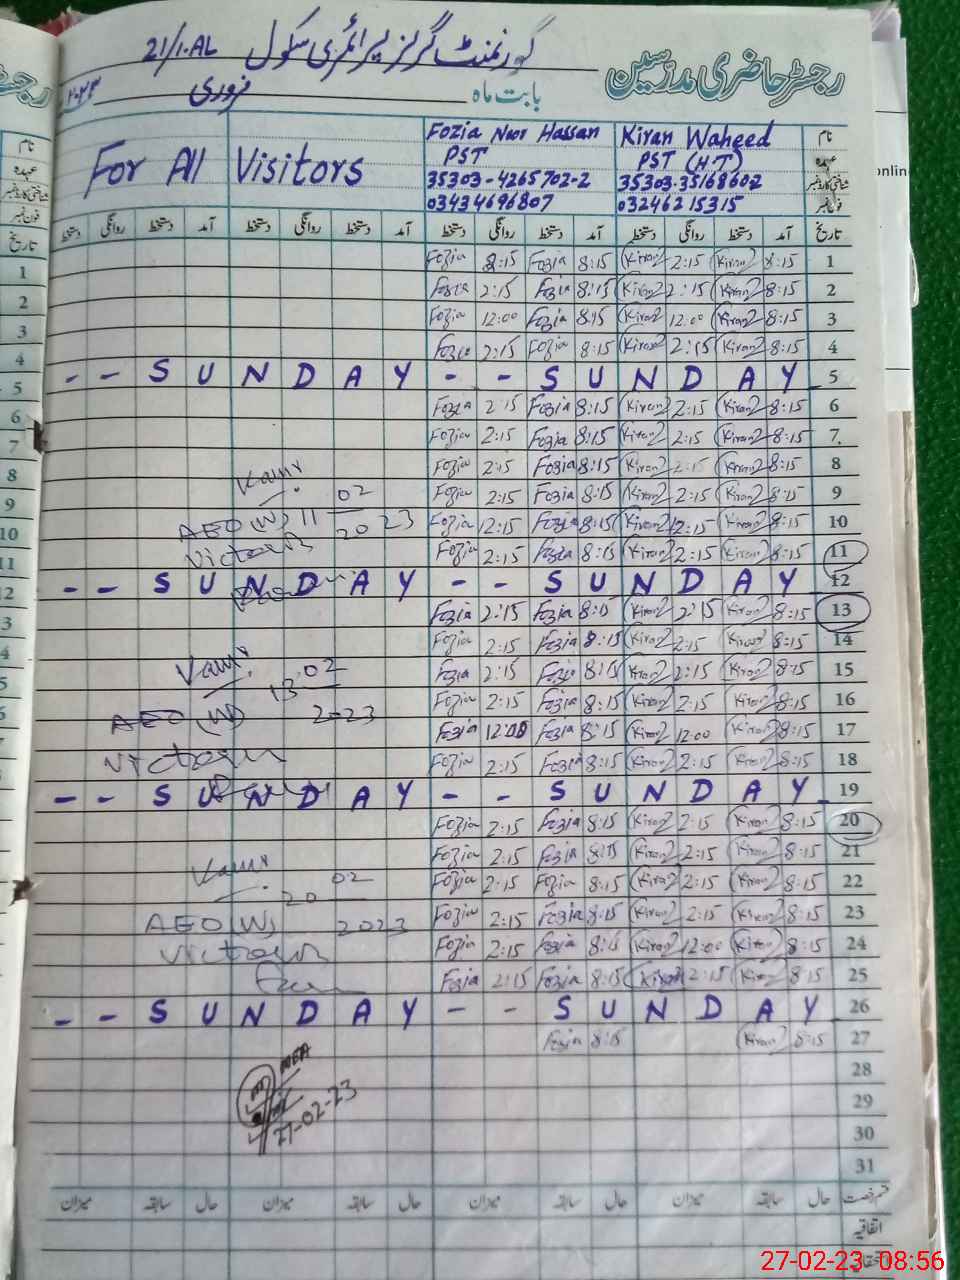 گورنمنٹ گرلز پرائمری سکول 21/1.AL
رجسٹر حاضری مدرسین
بابت ماہ فروری
نام Kiran Waheed Fozia Noor Hassan For All Visitors
عہدہ PST (H.T) PST
شناختی کارڈ نمبر 35303-3516860-2 35303-4265702-2
فون نمبر 03246215315 03434696807
تاریخ آمد دستخط روانگی دستخط آمد دستخط روانگی دستخط آمد دستخط روانگی دستخط آمد دستخط روانگی دستخط
1 8:15 Kiran 2:15 Kiran 8:15 Fozia 2:15 Fozia
2 8:15 Kiran 2:15 Kiran 8:15 Fozia 2:15 Fozia
3 8:15 Kiran 12:00 Kiran 8:15 Fozia 12:00 Fozia
4 8:15 Kiran 2:15 Kiran 8:15 Fozia 2:15 Fozia
- - S U N D A Y - - S U N D A Y 5
6 8:15 Kiran 2:15 Kiran 8:15 Fozia 2:15 Fozia
7 8:15 Kiran 2:15 Kiran 8:15 Fozia 2:15 Fozia
8 8:15 Kiran 2:15 Kiran 8:15 Fozia 2:15 Fozia
9 8:15 Kiran 2:15 Kiran 8:15 Fozia 2:15 Fozia
10 8:15 Kiran 12:15 Kiran 8:15 Fozia 12:15 Fozia
11 8:15 Kiran 2:15 Kiran 8:15 Fozia 2:15 Fozia
AEO (W) 11 02 2023
- - S U N D A Y - - S U N D A Y 12
13 8:15 Kiran 2:15 Kiran 8:15 Fozia 2:15 Fozia
14 8:15 Kiran 2:15 Kiran 8:15 Fozia 2:15 Fozia
15 8:15 Kiran 2:15 Kiran 8:15 Fozia 2:15 Fozia
16 8:15 Kiran 2:15 Kiran 8:15 Fozia 2:15 Fozia
17 8:15 Kiran 12:00 Kiran 8:15 Fozia 12:00 Fozia
18 8:15 Kiran 2:15 Kiran 8:15 Fozia 2:15 Fozia
13.02
AEO (W) 2023
- - S U N D A Y - - S U N D A Y 19
20 8:15 Kiran 2:15 Kiran 8:15 Fozia 2:15 Fozia
21 8:15 Kiran 2:15 Kiran 8:15 Fozia 2:15 Fozia
22 8:15 Kiran 2:15 Kiran 8:15 Fozia 2:15 Fozia
23 8:15 Kiran 2:15 Kiran 8:15 Fozia 2:15 Fozia
24 8:15 Kiran 12:00 Kiran 8:15 Fozia 2:15 Fozia
25 8:15 Kiran 2:15 Kiran 8:15 Fozia 2:15 Fozia
20 02
AEO (W) 2023
- - S U N D A Y - - S U N D A Y 26
27 8:15 Kiran 8:15 Fozia
28
MEA
29
27-02-23
30
31
قسم رخصت حال سابقہ میزان حال سابقہ میزان حال سابقہ میزان حال سابقہ میزان
اتفاقیہ
27-02-23 08:56